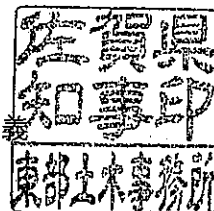 佐賀県
知事印
義
東部土木事務所